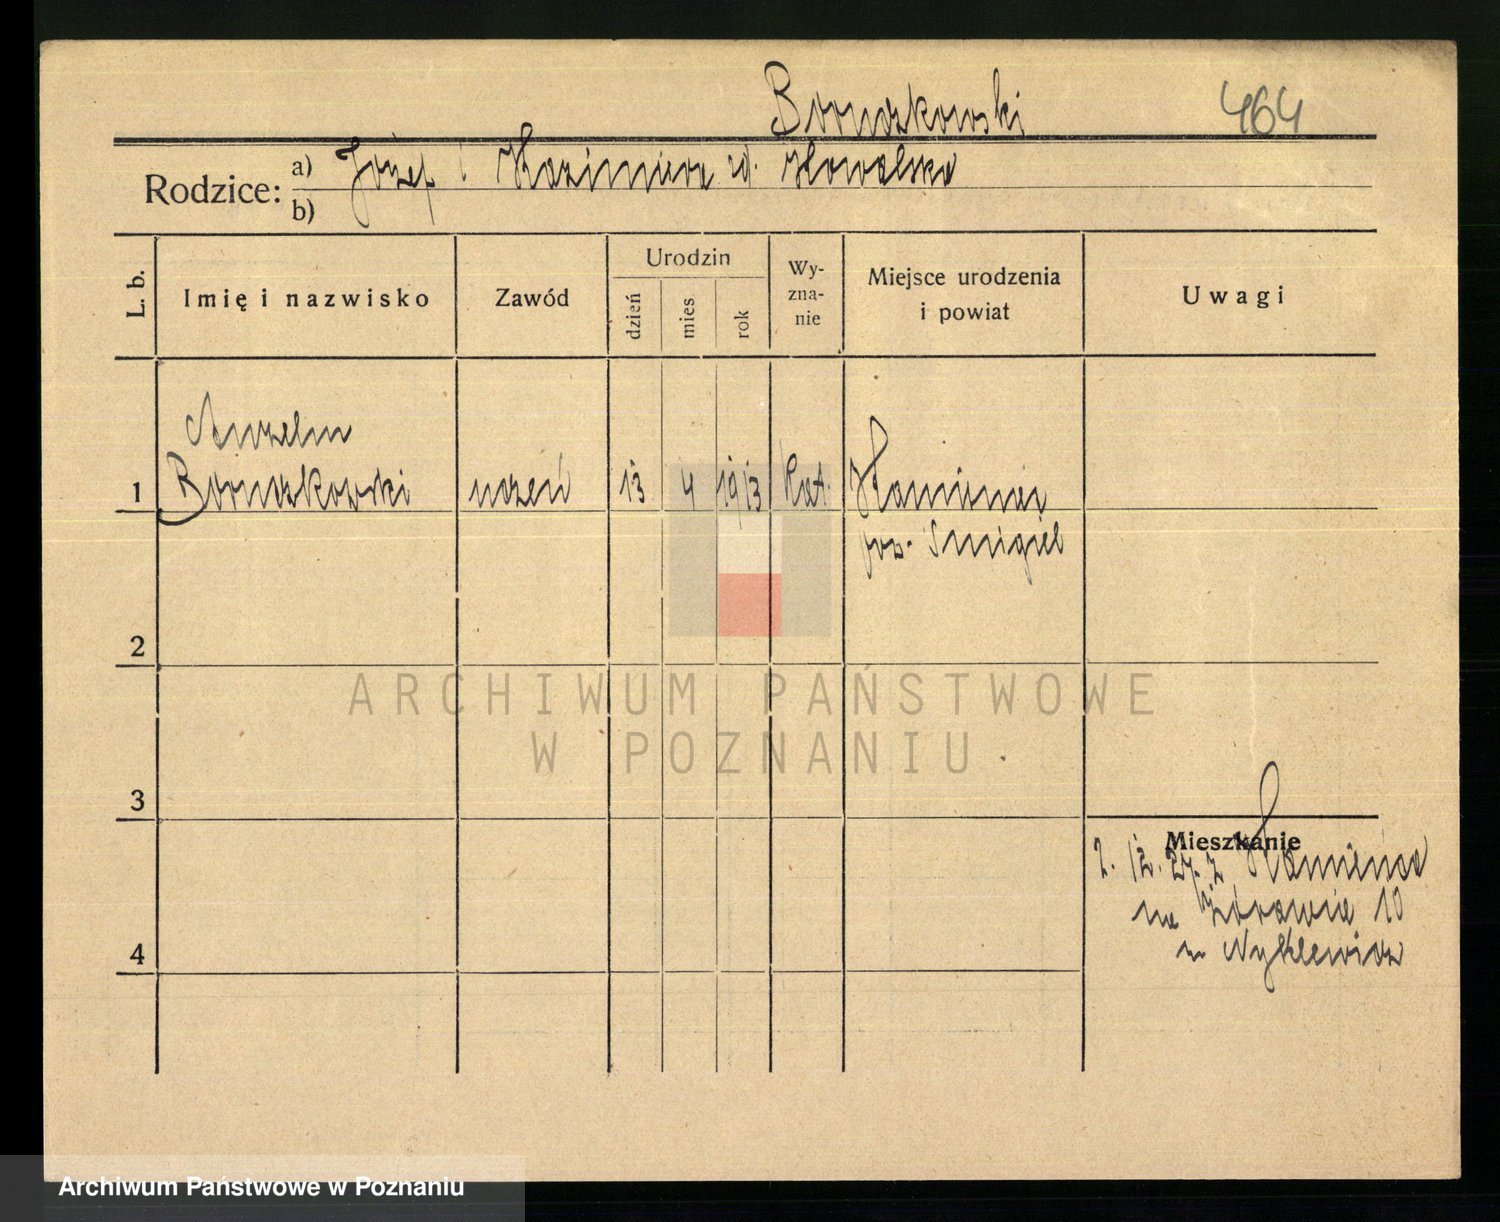 Boruszkowski 464
Rodzice: a) Józef i Kazimiera zd. Kowalska
b)
L. b. Imię i nazwisko Zawód Urodzin dzień mies rok Wyznanie Miejsce urodzenia i powiat Uwagi
Anzelm
1 Boruszkowski uczeń 13 4 1913 Kat.
pow. Śmigiel
2
3
4
Mieszkanie
2. 12. 27. z Kamieńca
na Żórawia 10
ARCHIWUM PAŃSTWOWE
W POZNANIU
Archiwum Państwowe w Poznaniu